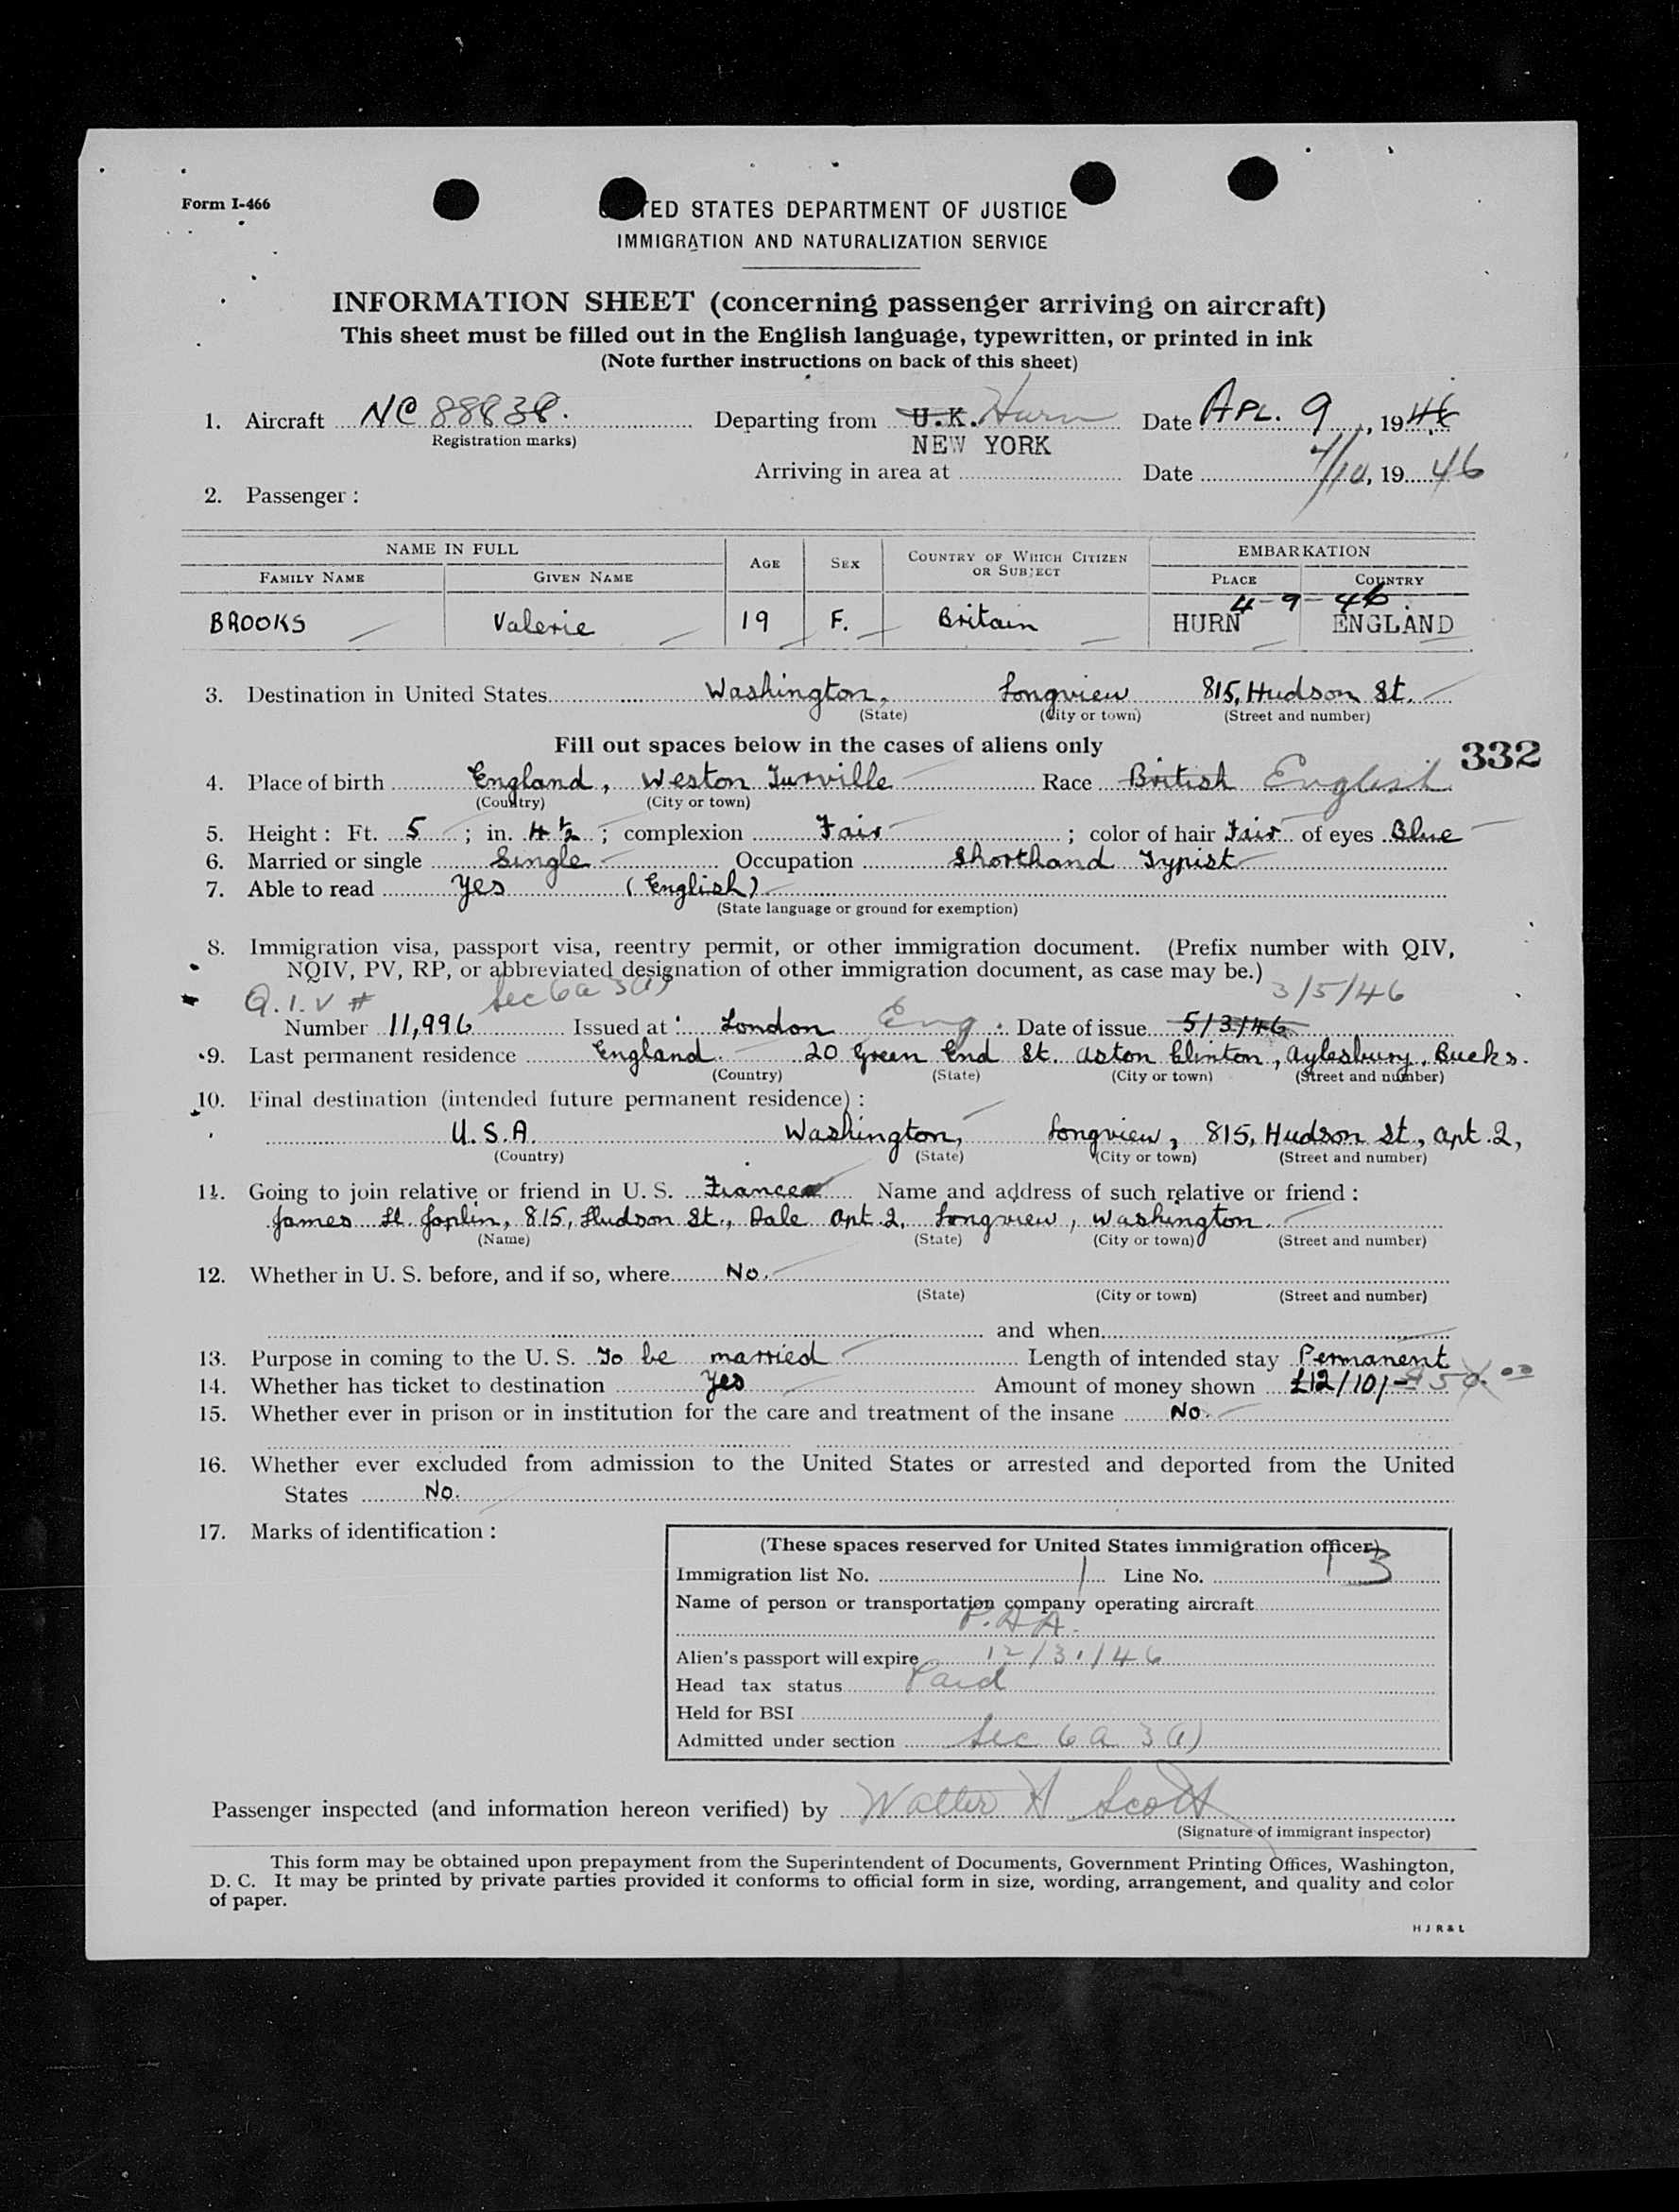 Form I-466
UNITED STATES DEPARTMENT OF JUSTICE
IMMIGRATION AND NATURALIZATION SERVICE
INFORMATION SHEET (concerning passenger arriving on aircraft)
This sheet must be filled out in the English language, typewritten, or printed in ink
(Note further instructions on back of this sheet)
1. Aircraft NC 88838. Departing from U.K. Hurn Date APL. 9, 1946
(Registration marks)
NEW YORK
Arriving in area at Date 4/10, 19 46
2. Passenger :
NAME IN FULL AGE SEX COUNTRY OF WHICH CITIZEN OR SUBJECT EMBARKATION
FAMILY NAME GIVEN NAME PLACE COUNTRY
4-9-46.
BROOKS Valerie 19 F. Britain HURN ENGLAND
3. Destination in United States Washington, Longview 815, Hudson St.
(State) (City or town) (Street and number)
Fill out spaces below in the cases of aliens only
332
4. Place of birth England, Weston Turville Race British English
(Country) (City or town)
5. Height : Ft. 5 ; in. 4½ ; complexion Fair ; color of hair Fair of eyes Blue
6. Married or single Single Occupation Shorthand Typist
7. Able to read Yes (English)
(State language or ground for exemption)
8. Immigration visa, passport visa, reentry permit, or other immigration document. (Prefix number with QIV,
NQIV, PV, RP, or abbreviated designation of other immigration document, as case may be.)
Q.I.V # Sec 6a 3(1) 3/5/46
Number 11,996 Issued at London Eng. Date of issue 5/3/46
9. Last permanent residence England. 20 Green End St. Aston Clinton, Aylesbury, Bucks.
(Country) (State) (City or town) (Street and number)
10. Final destination (intended future permanent residence) :
U.S.A. Washington, Longview, 815, Hudson St, Apt. 2,
(Country) (State) (City or town) (Street and number)
11. Going to join relative or friend in U. S. Fiance Name and address of such relative or friend :
James H. Joplin, 815, Hudson St., Dale Apt. 2, Longview, Washington.
(Name) (State) (City or town) (Street and number)
12. Whether in U. S. before, and if so, where No.
(State) (City or town) (Street and number)
and when
13. Purpose in coming to the U. S. To be married Length of intended stay Permanent
14. Whether has ticket to destination Yes Amount of money shown £12/10/-
15. Whether ever in prison or in institution for the care and treatment of the insane No.
16. Whether ever excluded from admission to the United States or arrested and deported from the United
States No.
17. Marks of identification :
(These spaces reserved for United States immigration officer)
Immigration list No. 1 Line No. 13
Name of person or transportation company operating aircraft
P.A.A.
Alien's passport will expire 12/31/46
Head tax status Paid
Held for BSI
Admitted under section Sec 6a 3(1)
Passenger inspected (and information hereon verified) by Walter H Scott
(Signature of immigrant inspector)
This form may be obtained upon prepayment from the Superintendent of Documents, Government Printing Offices, Washington,
D. C. It may be printed by private parties provided it conforms to official form in size, wording, arrangement, and quality and color
of paper.
H J R & L